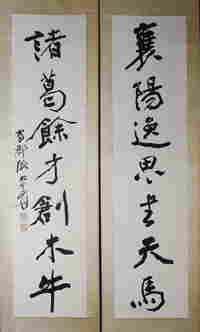 襄陽逸思書天馬
諸葛餘才創木牛